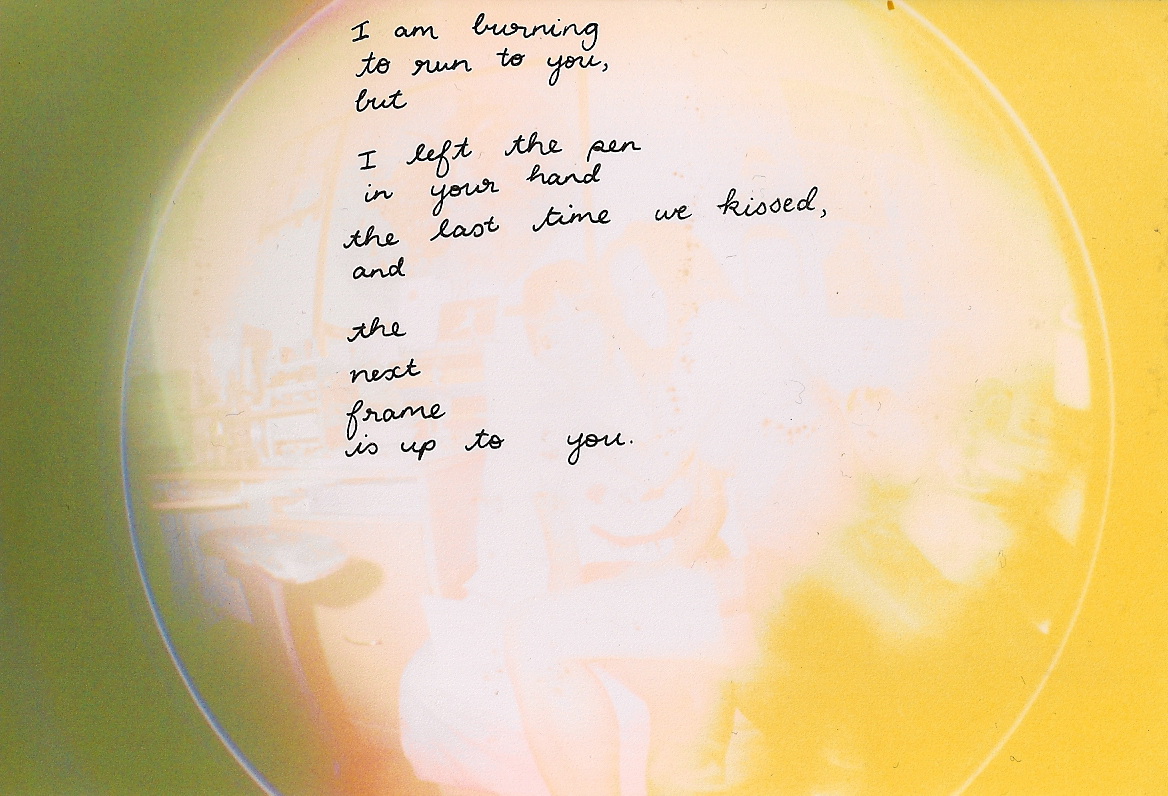 I am burning
to run to you,
but
I left the pen
in your hand
the last time we kissed,
and
the
next
frame
is up to you.